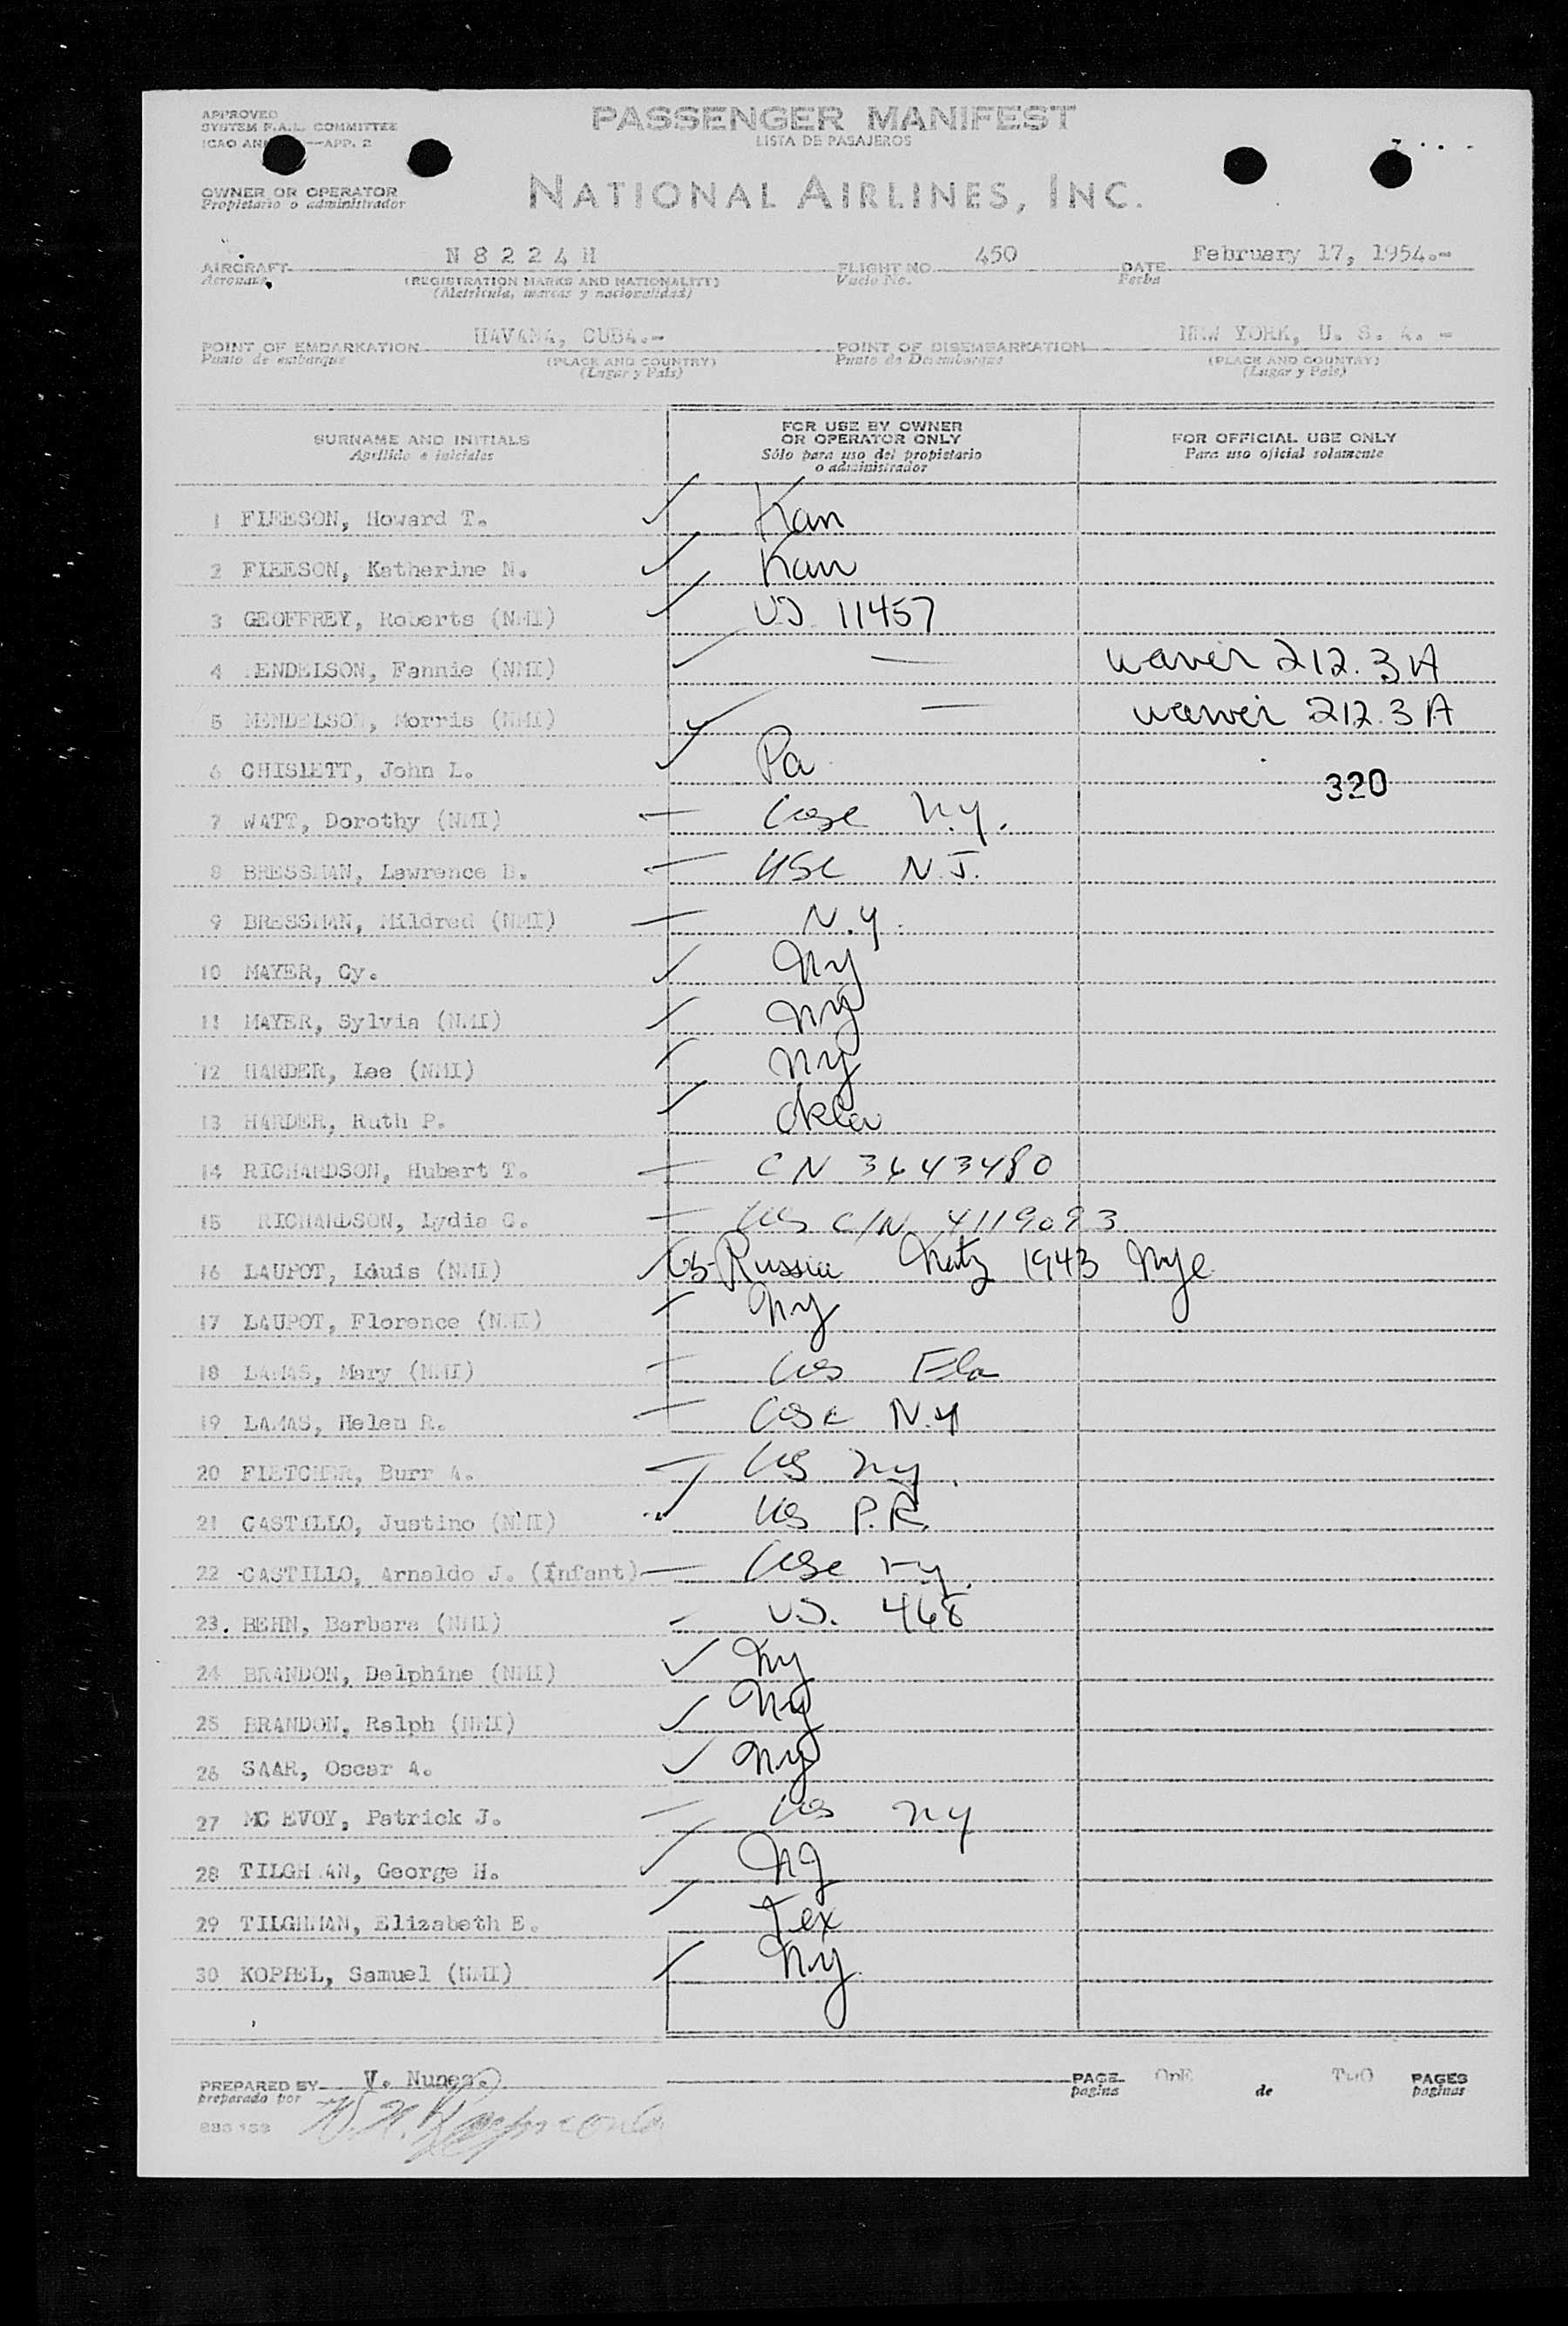 APPROVED
SYSTEM F.A.L. COMMITTEE
ICAO —APP. 2
PASSENGER MANIFEST
LISTA DE PASAJEROS
OWNER OR OPERATOR
Propietario o administrador
NATIONAL AIRLINES, INC.
AIRCRAFT N 8 2 2 4 H FLIGHT NO. 450 DATE February 17, 1954.-
Aeronave (REGISTRATION MARKS AND NATIONALITY) Vuelo No. Fecha
(Matrícula, marcas y nacionalidad)
POINT OF EMBARKATION HAVANA, CUBA.- POINT OF DISEMBARKATION NEW YORK, U. S. A. -
Punto de embarque (PLACE AND COUNTRY) Punto de Desembarque (PLACE AND COUNTRY)
(Lugar y País) (Lugar y País)
SURNAME AND INITIALS
Apellido e iniciales
FOR USE BY OWNER
OR OPERATOR ONLY
Sólo para uso del propietario
o administrador
FOR OFFICIAL USE ONLY
Para uso oficial solamente
1 FLEESON, Howard T. Kan
2 FLEESON, Katherine N. Kan
3 GEOFFREY, Roberts (NMI) 11457
4 MENDELSON, Fannie (NMI) — waver 212.3A
5 MENDELSON, Morris (NMI) — waver 212.3A
6 CHISLETT, John L. Pa
320
7 WATT, Dorothy (NMI) N.Y.
8 BRESSMAN, Lawrence B. USC N.J.
9 BRESSMAN, Mildred (NMI) N.Y.
10 MAYER, Cy. NY
11 MAYER, Sylvia (NMI) NY
12 HARDER, Lee (NMI) NY
13 HARDER, Ruth P. Okla
14 RICHARDSON, Hubert T. CN 3643480
15 RICHARDSON, Lydia C. US C/N 4119093
16 LAUPOT, Louis (NMI) US-Russia Natz 1943 NYC
17 LAUPOT, Florence (NMI) NY
18 LAMAS, Mary (NMI) US Fla
19 LAMAS, Helen R. USC N.Y
20 FLETCHER, Burr A. US NY.
21 CASTILLO, Justino (NMI) US P.R.
22 CASTILLO, Arnaldo J. (Infant) USC NY.
23. BEHN, Barbara (NMI) 468
24 BRANDON, Delphine (NMI) NY
25 BRANDON, Ralph (NMI) NY
26 SAAR, Oscar A. NY
27 MC EVOY, Patrick J. US NY
28 TILGHMAN, George H. NJ
29 TILGHMAN, Elizabeth E. Tex
30 KOPPEL, Samuel (NMI) NY
PREPARED BY V. Nunes. PAGE OnE TwO PAGES
preparado por pagina de paginas